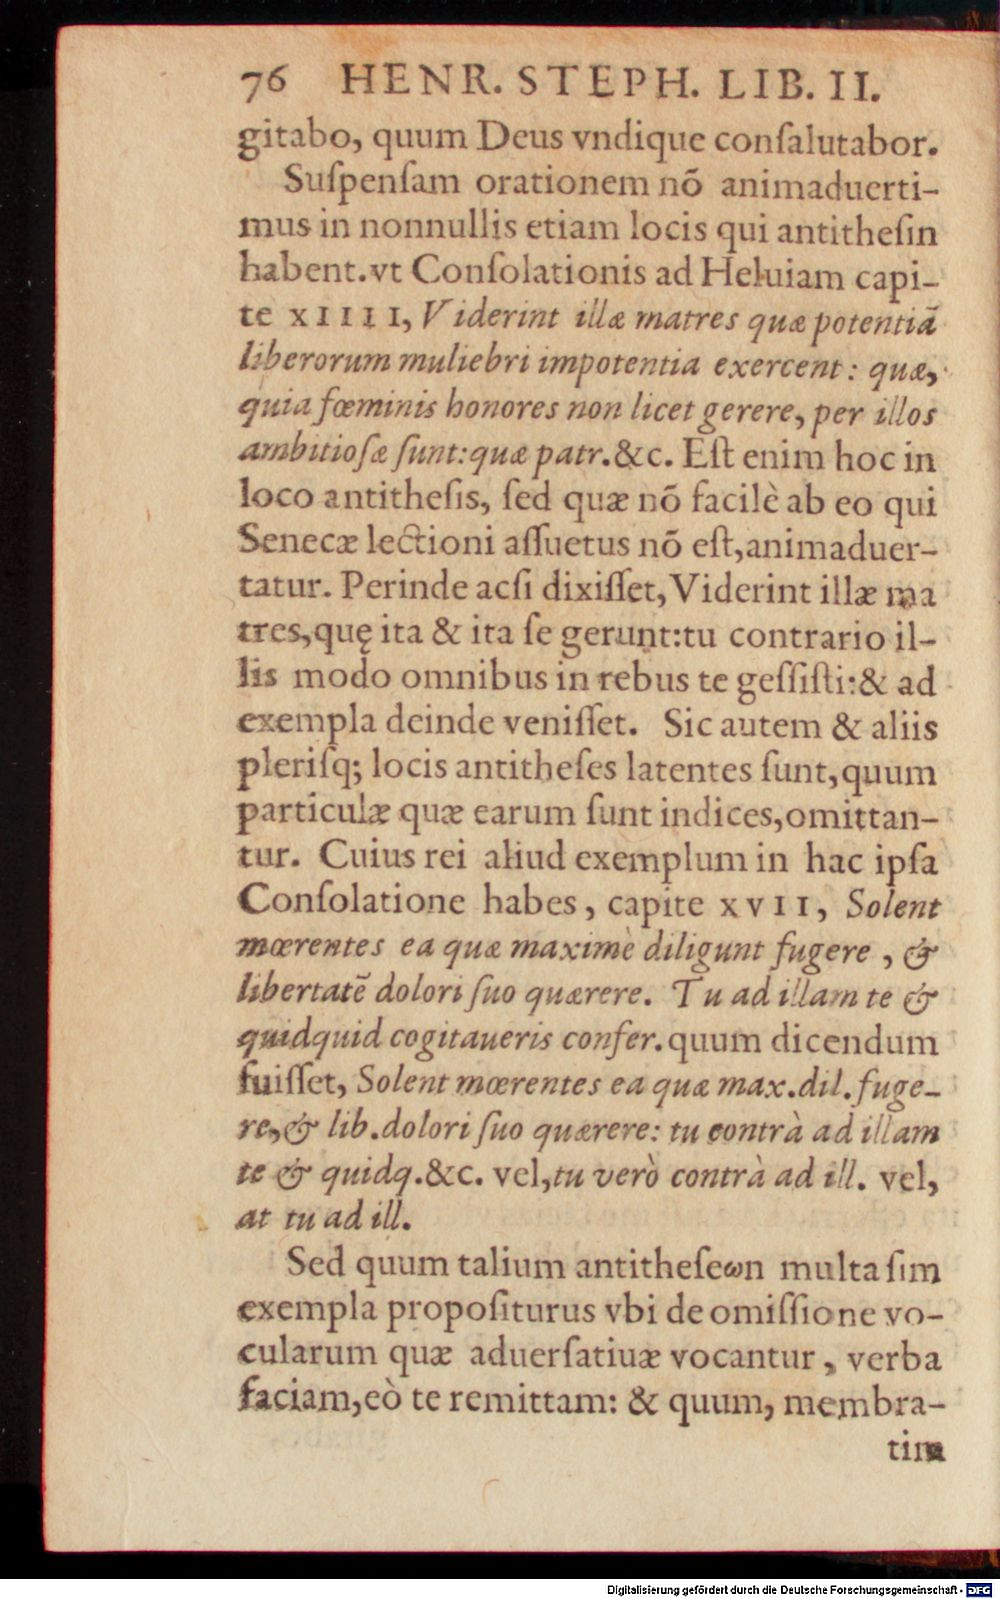 76 HENR. STEPH. LIB. II.
gitabo, quum Deus vndique conſalutabor.
Suſpenſam orationem nõ animaduerti-
mus in nonnullis etiam locis qui antitheſin
habent.vt Conſolationis ad Heluiam capi-
te XIIII, Viderint illæ matres quæ potentiã
liberorum muliebri impotentia exercent: quæ,
quia fœminis honores non licet gerere, per illos
ambitioſæ ſunt: quæ patr.&c. Eſt enim hoc in
loco antitheſis, ſed quæ nõ facilè ab eo qui
Senecæ lectioni aſſuetus nõ eſt, animaduer-
tatur. Perinde acſi dixiſſet, Viderint illæ ma
tres, quę ita & ita ſe gerunt: tu contrario il-
lis modo omnibus in rebus te geſſiſti: & ad
exempla deinde veniſſet. Sic autem & aliis
pleriſq; locis antitheſes latentes ſunt, quum
particulæ quæ earum ſunt indices, omittan-
tur. Cuius rei aliud exemplum in hac ipſa
Conſolatione habes, capite XVII, Solent
mœrentes ea quæ maximè diligunt fugere, &
libertatẽ dolori ſuo quærere. Tu ad illam te &
quidquid cogitaueris confer. quum dicendum
fuiſſet, Solent mœrentes ea quæ max. dil. fuge-
re, & lib. dolori ſuo quærere: tu contrà ad illam
te & quidq.&c. vel, tu verò contrà ad ill. vel,
at tu ad ill.
Sed quum talium antitheſeωn multa ſim
exempla propoſiturus vbi de omiſſione vo-
cularum quæ aduerſatiuæ vocantur, verba
faciam, eò te remittam: & quum, membra-
tim
Digitalisierung gefördert durch die Deutsche Forschungsgemeinschaft - DFG